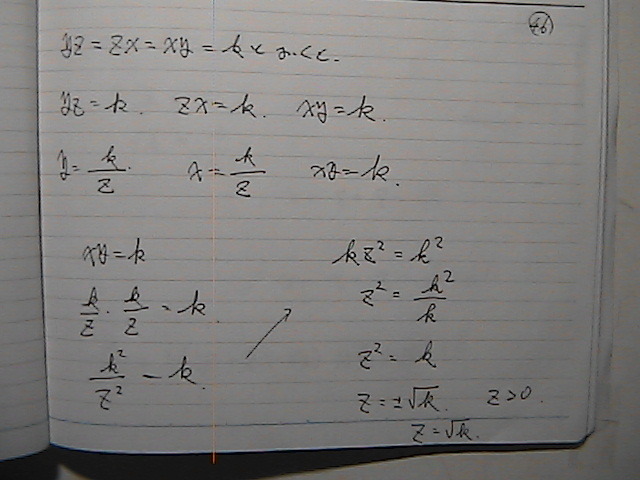 46
yz = zx = xy = k と おくと.
yz = k. zx = k. xy = k.
y = k/z. x = k/z xy = k.
xy = k
k/z · k/z = k
k²/z² = k.
kz² = k²
z² = k²/k
z² = k
z = ±√k. z>0.
z = √k.